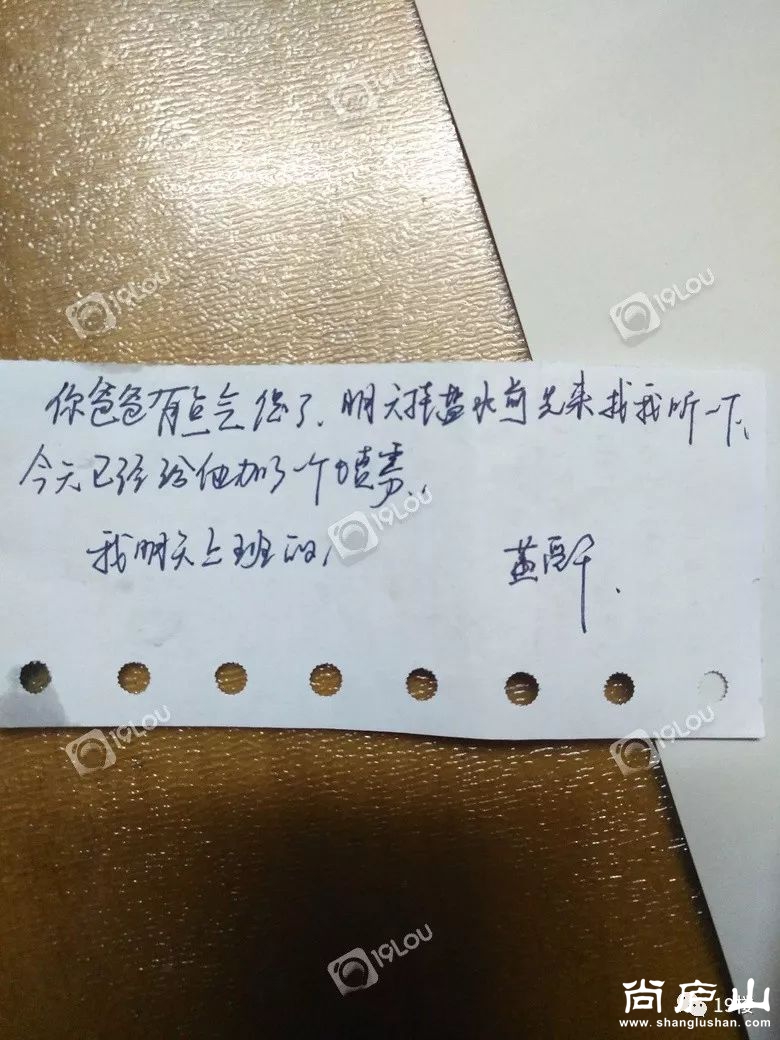 19LOU
19LOU
19LOU
你爸爸有点气促了，明天挂盐水前先来找我听一下、
今天已经给他加了个喷雾，
19LOU
我明天上班的，
19LOU
19LOU
19LOU
尚庐山
19楼
www.shanglushan.com